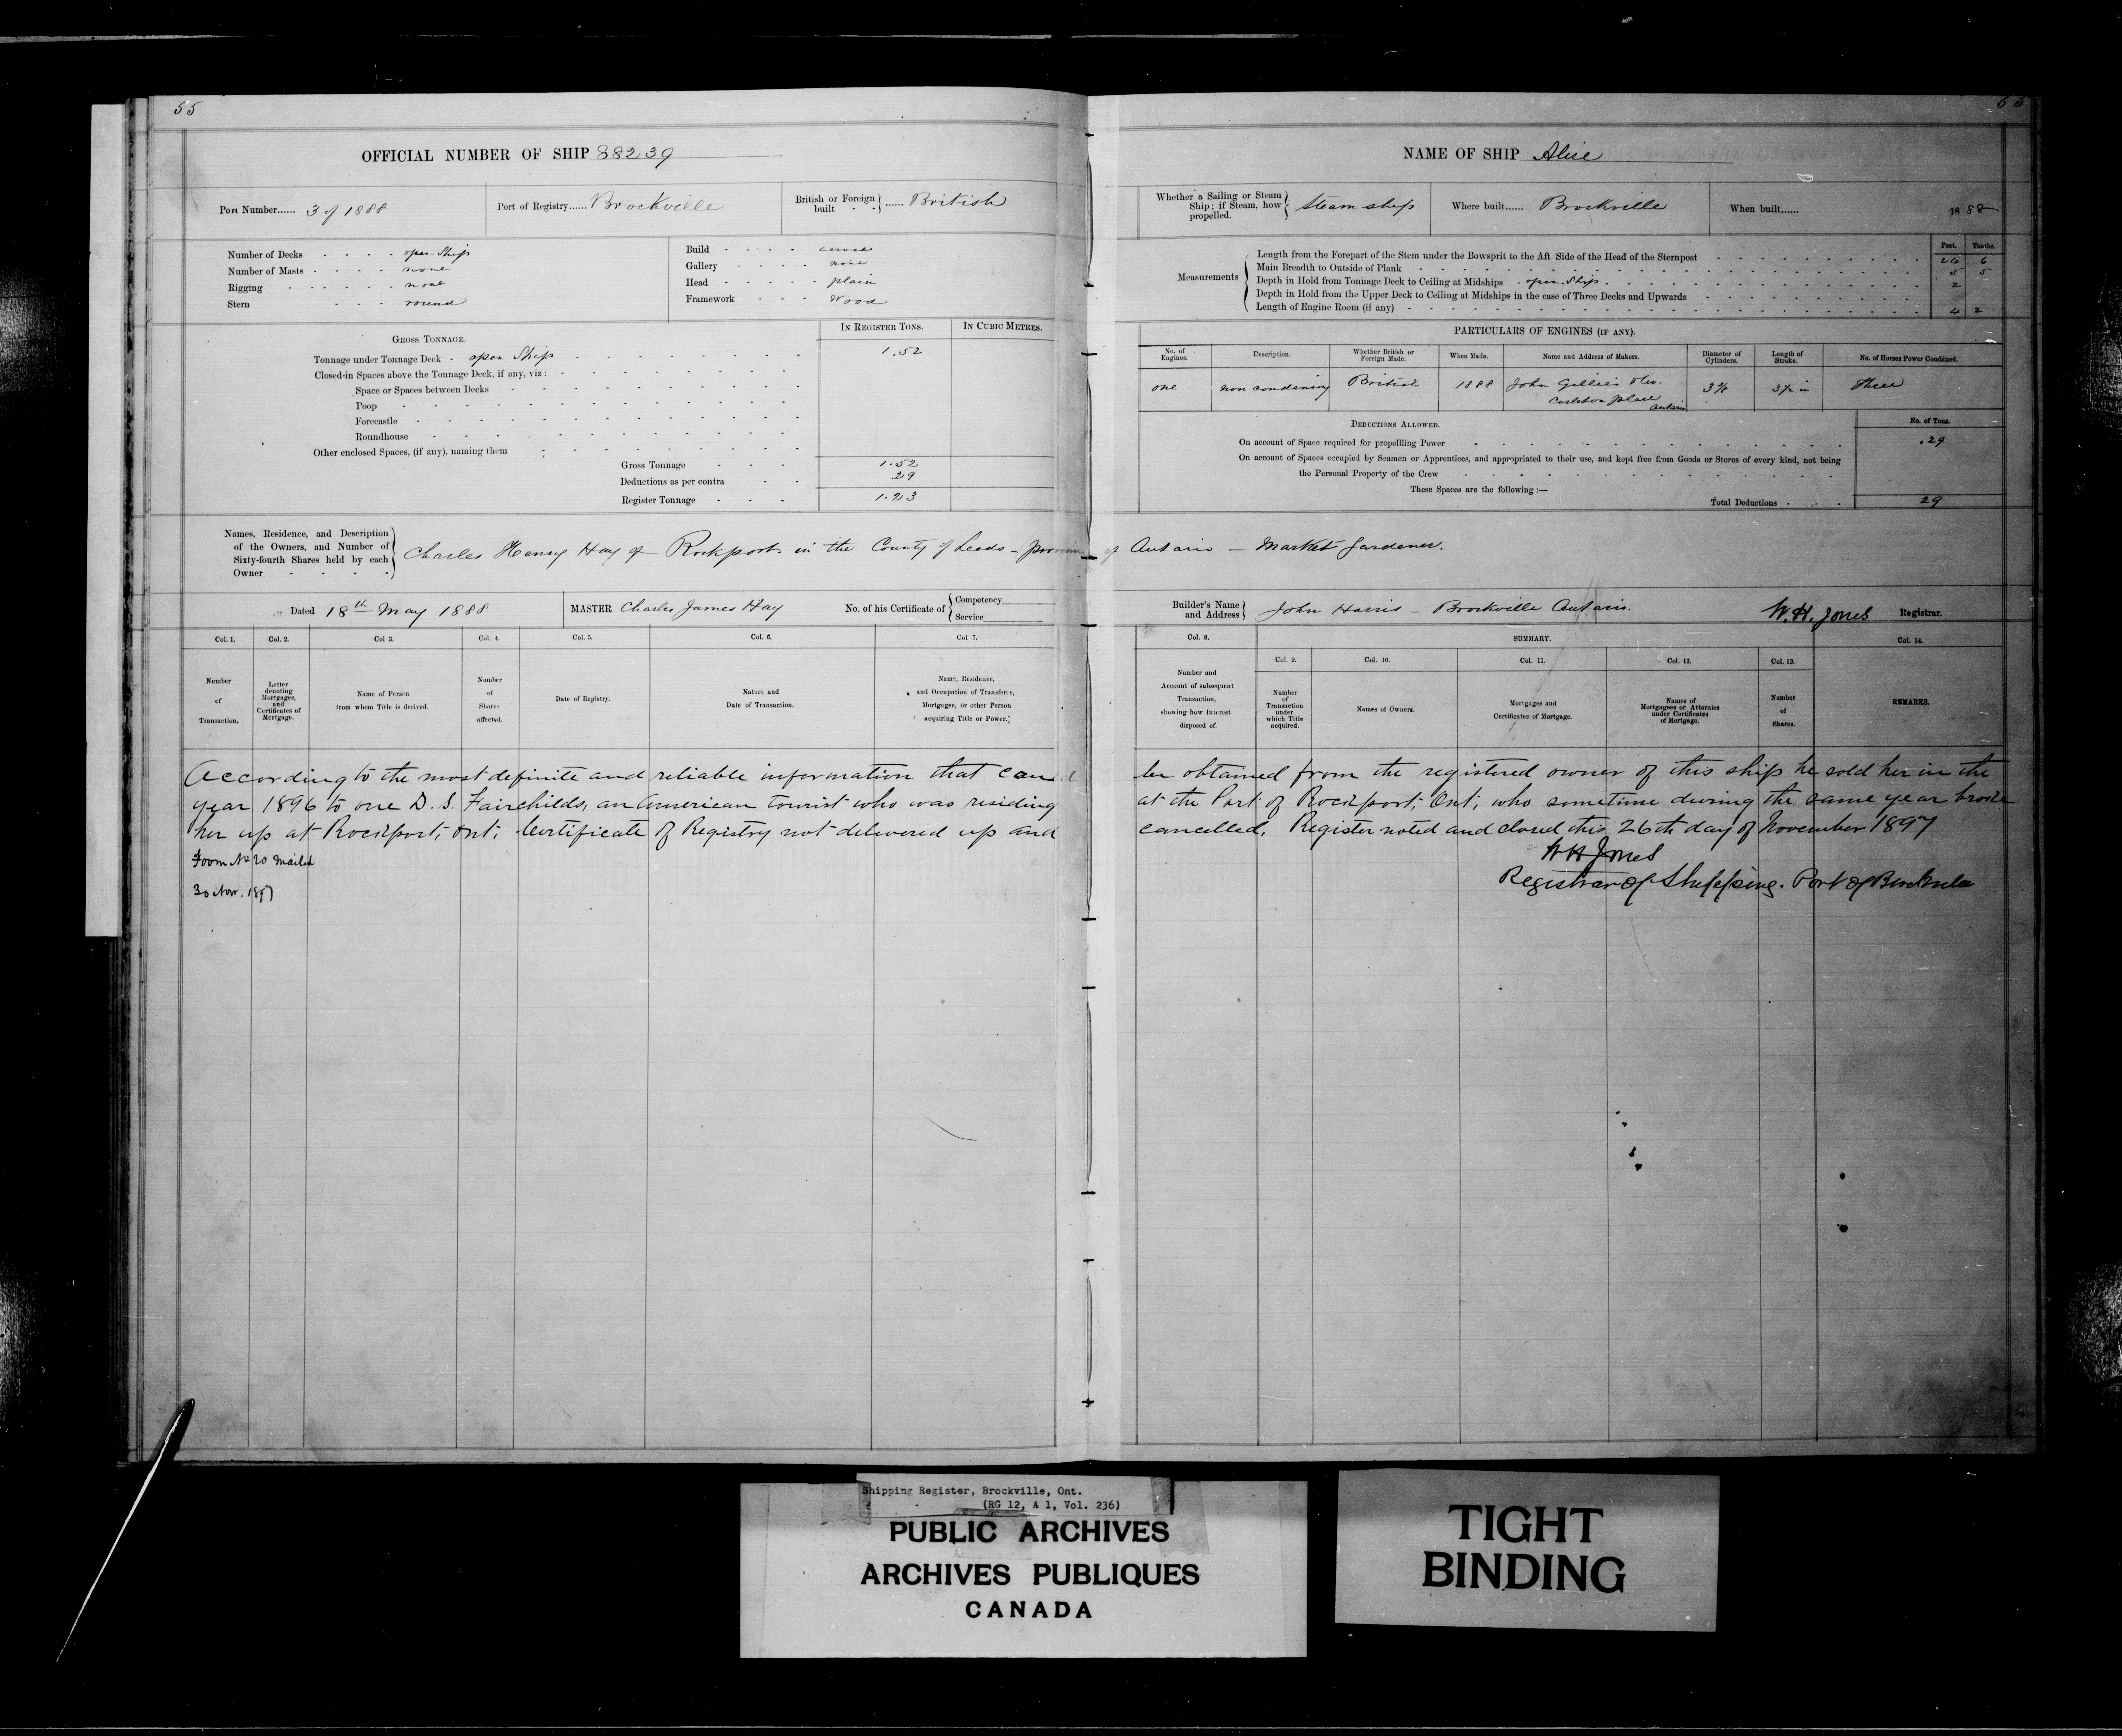 55
OFFICIAL NUMBER OF SHIP 88239
Port Number...... 3 of 1888
Port of Registry...... Brockville
British or Foreign built - - } ...... British
Number of Decks - - - - open Ship
Number of Masts - - - - none
Rigging - - - - - none
Stern - - - round
Build - - - - carvel
Gallery - - - - none
Head - - - - - plain
Framework - - - Wood
GROSS TONNAGE.
IN REGISTER TONS.
IN CUBIC METRES.
Tonnage under Tonnage Deck - open Ship 1.52
Closed-in Spaces above the Tonnage Deck, if any, viz:
Space or Spaces between Decks
Poop
Forecastle
Roundhouse
Other enclosed Spaces, (if any), naming them
Gross Tonnage 1.52
Deductions as per contra .29
Register Tonnage 1.23
Names, Residence, and Description
of the Owners, and Number of
Sixty-fourth Shares held by each
Owner
Charles Henry Hay of Rockport in the County of Leeds - province of Ontario - Market Gardener.
Dated 18th May 1888
MASTER Charles James Hay
No. of his Certificate of { Competency
Service
Col. 1. Col. 2. Col 3. Col. 4. Col. 5. Col. 6. Col 7.
Number of Transaction.
Letter denoting Mortgages, and Certificates of Mortgage.
Name of Person from whom Title is derived.
Number of Shares affected.
Date of Registry.
Nature and Date of Transaction.
Name, Residence, and Occupation of Transferee, Mortgagee, or other Person acquiring Title or Power.
According to the most definite and reliable information that can
year 1896 to one D. S. Fairchilds, an American tourist who was residing
her up at Rockport, Ont; Certificate of Registry not delivered up and
Form No 20 Mailed
30 Nov. 1897
55
NAME OF SHIP Alice
Whether a Sailing or Steam Ship; if Steam, how propelled. } Steam ship
Where built...... Brockville
When built...... 1888
Feet. Tenths.
Measurements
Length from the Forepart of the Stem under the Bowsprit to the Aft Side of the Head of the Sternpost 26 6
Main Breadth to Outside of Plank 5 5
Depth in Hold from Tonnage Deck to Ceiling at Midships - open Ship 2
Depth in Hold from the Upper Deck to Ceiling at Midships in the case of Three Decks and Upwards
Length of Engine Room (if any) 4 2
PARTICULARS OF ENGINES (IF ANY).
No. of Engines. Description. Whether British or Foreign Made. When Made. Name and Address of Makers. Diameter of Cylinders. Length of Stroke. No. of Horses Power Combined.
one non condensing British 1888 John Gillies Carleton place Ontario 3½ in Three
DEDUCTIONS ALLOWED.
No. of Tons.
On account of Space required for propellling Power .29
On account of Spaces occupied by Seamen or Apprentices, and appropriated to their use, and kept free from Goods or Stores of every kind, not being
the Personal Property of the Crew
These Spaces are the following:—
Total Deductions 29
Builder's Name and Address } John Harris - Brockville Ontario.
W. H. Jones Registrar.
Col. 8. SUMMARY. Col. 14.
Col. 9. Col. 10. Col. 11. Col. 12. Col. 13.
Number and Account of subsequent Transaction, showing how Interest disposed of.
Number of Transaction under which Title acquired.
Names of Owners.
Mortgages and Certificates of Mortgage.
Names of Mortgagees or Attornies under Certificates of Mortgage.
Number of Shares.
REMARKS.
be obtained from the registered owner of this ship he sold her in the
at the Port of Rockport, Ont; who sometime during the same year broke
cancelled. Register noted and closed this 26th day of November 1897
W H Jones
Registrar of Shipping. Port of Brockville
Shipping Register, Brockville, Ont.
(RG 12, A 1, Vol. 236)
PUBLIC ARCHIVES
ARCHIVES PUBLIQUES
CANADA
TIGHT
BINDING